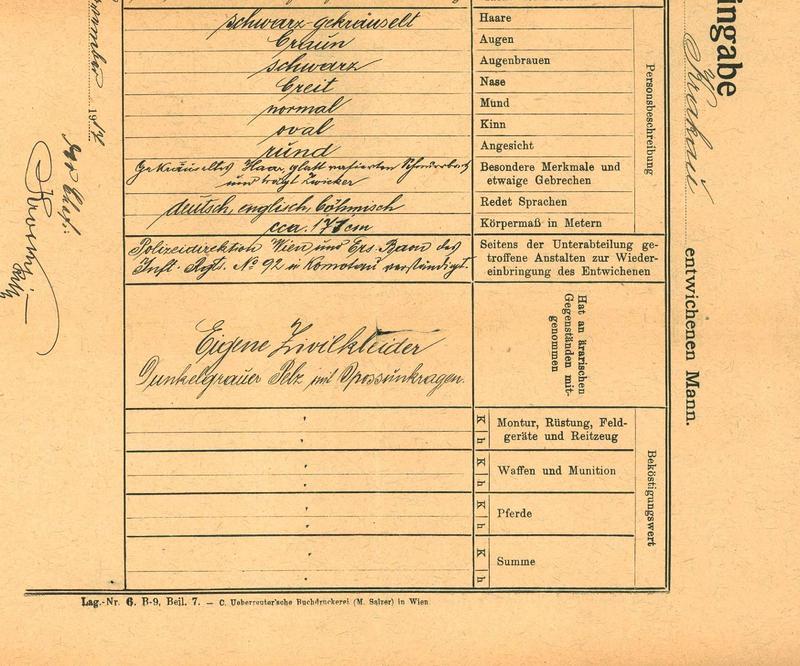 schwarz gekräuselt
Haare
braun
Augen
schwarz
Augenbrauen
breit
Nase
normal
Mund
oval
Kinn
rund
Angesicht
Gekräuseltes Haar, glatt rasierten Schnurrbart
und trägt Zwicker
Besondere Merkmale und
etwaige Gebrechen
deutsch, englisch, böhmisch
Redet Sprachen
cca. 171 cm
Körpermaß in Metern
Personsbeschreibung
Polizeidirektion Wien und Ers. Baon des
Inft. Rgts. No 92 in Komotau verständigt.
Seitens der Unterabteilung ge-
troffene Anstalten zur Wieder-
einbringung des Entwichenen
Eigene Zivilkleider
Dunkelgrauer Pelz mit Opossunkragen.
Hat an ärarischen
Gegenständen mit-
genommen
K h
Montur, Rüstung, Feld-
geräte und Reitzeug
K h
Waffen und Munition
K h
Pferde
K h
Summe
Beköstigungswert
ingabe
Krakau
entwichenen Mann.
1917
Lag.-Nr. 6. B-9, Beil. 7. — C. Ueberreuter'sche Buchdruckerei (M. Salzer) in Wien.